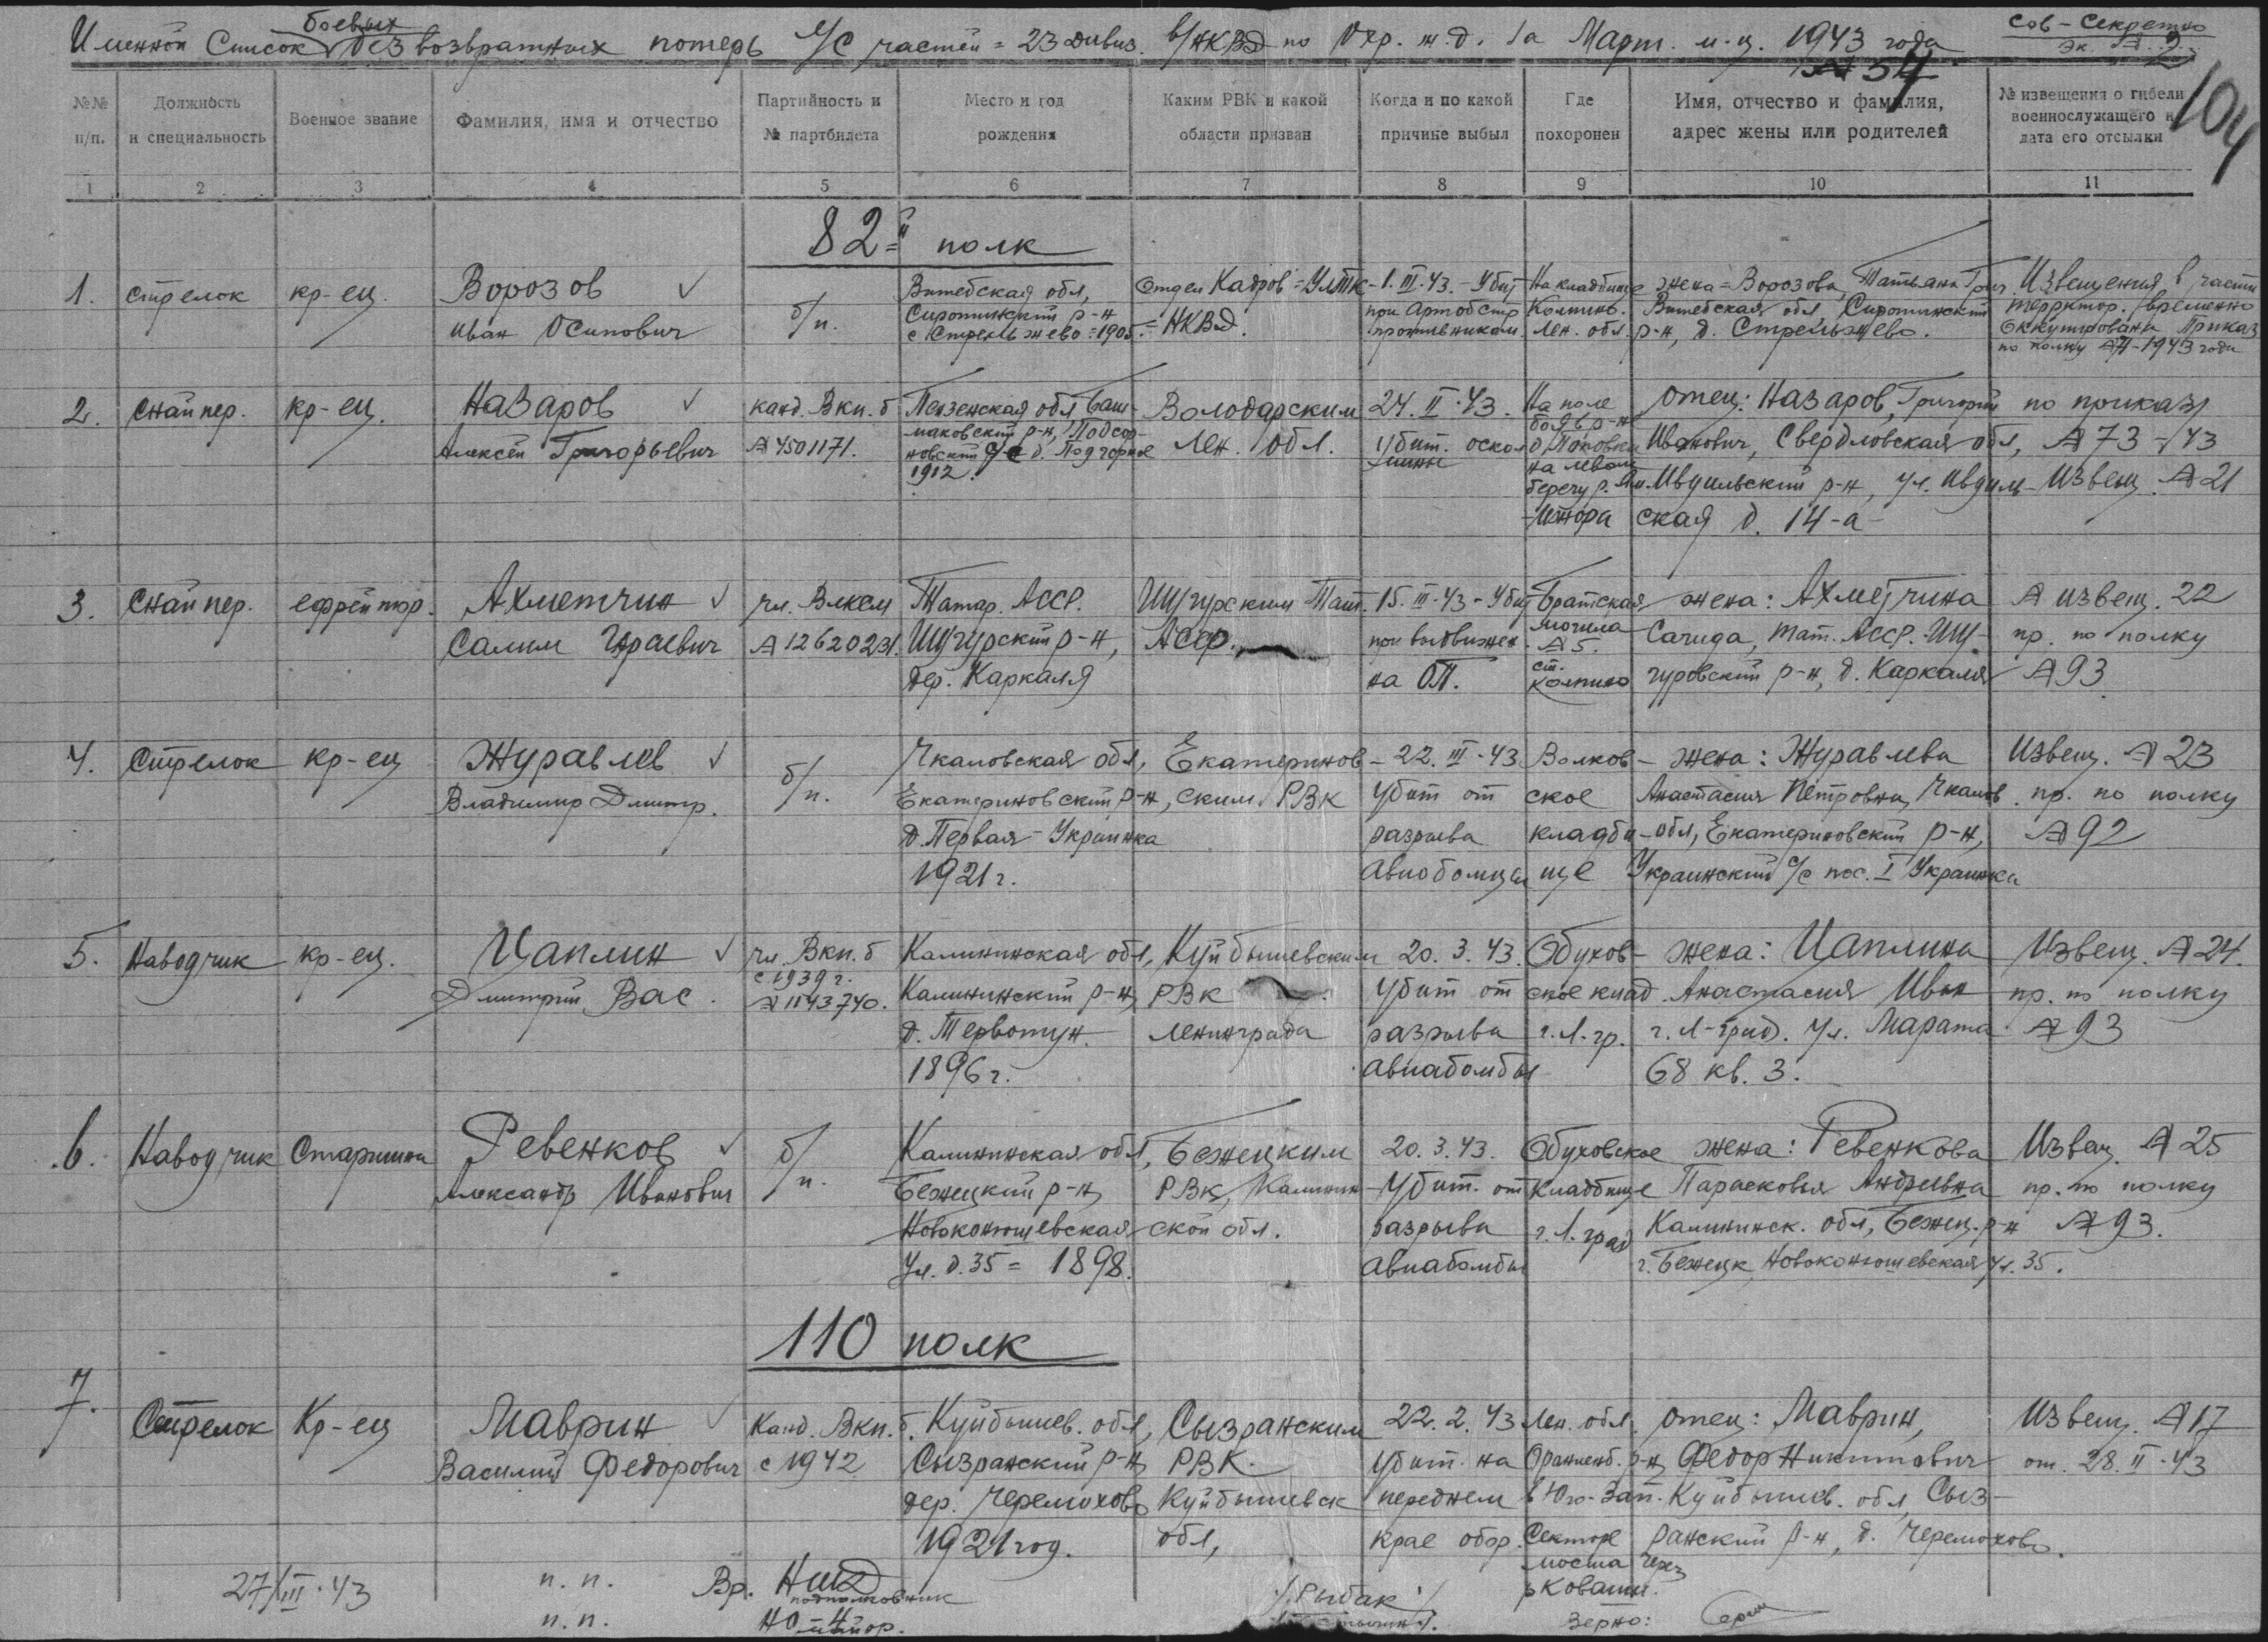 боевых
Именной Список безвозвратных потерь л/с частей = 23 дивиз. в/НКВД по Охр. ж.д. за Март. м-ц. 1943 года
Сов-Секретно
Эк. № 2
№ 54
104
№№ п/п.
Должность и специальность
Военное звание
Фамилия, имя и отчество
Партийность и № партбилета
Место и год рождения
Каким РВК и какой области призван
Когда и по какой причине выбыл
Где похоронен
Имя, отчество и фамилия, адрес жены или родителей
№ извещения о гибели военнослужащего и дата его отсылки
1 2 3 4 5 6 7 8 9 10 11
82-й полк
1.
стрелок
кр-ец.
Ворозов
Иван Осипович
б/п.
Витебская обл,
Сиротинский р-н
с Стрельжево = 1905.
Отдел Кадров =
- НКВД.
1.III.43. - Убит
при артобстр
противником.
На кладбище
Колпино.
Лен. обл.
жена = Ворозова, Татьяна Григ.
Витебская обл Сиротинский
р-н, д. Стрельжево.
Извещения в части
терриктор. временно
Оккупирована Приказ
по полку 1943 года
2.
Снайпер.
кр-ец.
Назаров
Алексей Григорьевич
канд. Вкп. б
№ 4501171.
Пензенская обл Баш-
маковский р-н, Подгор-
новский с/с д. Подгорное
1912.
Володарским
Лен. обл.
24.II.43.
убит. оскол
мины
На поле
боя в р-н
д. Поповка
на левом
берегу р.
-Ижора
отец: Назаров, Григорий
Иванович, Свердловская обл,
Ивдильский р-н, ул. Ивдиль-
ская д. 14-а-
по приказу
№ 73-43
Извещ. № 21
3.
Снайпер.
ефрейтор.
Ахметчин
Салим
чл. Влксм
№ 12620231.
Татар. АССР.
Шугурский р-н,
дер. Каркаля
Шугурским Тат.
АССР.
15.III.43 - Убит
при выдвижен.
на ОП.
Братская
могила
№ 5.
ст.
Колпино
жена: Ахметчина
Сагида, Тат. АССР. Шу-
гуровский р-н, д. Каркаля
№ извещ. 22
пр. по полку
№ 93
4.
Стрелок
кр-ец
Журавлев
Владимир Дмитр.
б/п.
Чкаловская обл,
Екатериновский р-н,
д. Первая - Украинка
1921 г.
Екатеринов-
ским РВК
22.III.43
Убит от
разрыва
авиобомбы
Волков-
ское
кладби-
ще
жена: Журавлева
Анастасия Петровна, Чкалов.
обл, Екатериновский р-н,
Украинский с/с пос. I Украинка
Извещ. № 23
пр. по полку
№ 92
5.
Наводчик
кр-ец.
Цаплин
Дмитрий Вас.
чл. Вкп. б
с 1939 г.
№ 1143740.
Калининская обл,
Калининский р-н,
д. Первотун.
1896 г.
Куйбышевским
РВК
Ленинграда
20.3.43.
Убит от
разрыва
авиабомбы
Обухов-
ское клад.
г. Л-гр.
жена: Цаплина
Анастасия Иван
г. Л-град. ул. Марата
68 кв. 3.
Извещ. № 24.
пр. по полку
№ 93
6.
Наводчик
Старшина
Ревенков
Александр Иванович
б/п.
Калининская обл,
Бежецкий р-н,
Новоконюшевская
ул. д. 35 = 1898.
Бежецким
РВК, Калинин-
ской обл.
20.3.43.
Убит. от
разрыва
авиабомбы
Обуховское
Кладбище
г. Л.град
жена: Ревенкова
Парасковья Андреевна
Калининск. обл, Бежец. р-н
г. Бежецк, Новоконюшевская ул. 35.
Извещ. № 25
пр. по полку
№ 93.
110 полк
7.
Стрелок
Кр-ец
Маврин
Василий Федорович
Канд. Вкп. б.
с 1942
Куйбышев. обл,
Сызранский р-н,
дер. Черемохово
1921 год.
Сызранским
РВК.
Куйбышевск
обл,
22.2.43
убит. на
переднем
крае обор.
Лен. обл.
Ораниенб. р-н,
в Юго-Зап.
Секторе
моста через
р Коваши.
отец: Маврин,
Федор Никитович
Куйбышев. обл, Сыз-
ранский р-н, д. Черемохово.
Извещ. № 17
от. 28.II.43
27/III.43
п. п. Вр. НШД
подполковник
/Рыбак/
п. п. НО-4
майор.
Верно: